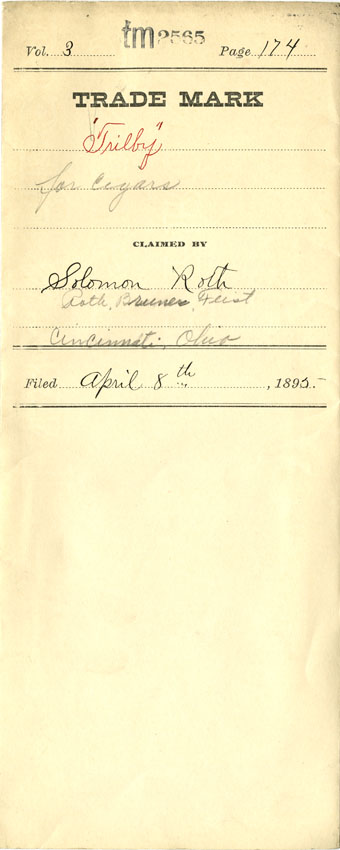 tm 2565
Vol. 3 Page 174
TRADE MARK
"Trilby"
for cigars
CLAIMED BY
Solomon Roth
Roth, Bruner, Feist
Cincinnati, Ohio
Filed April 8th, 1895.